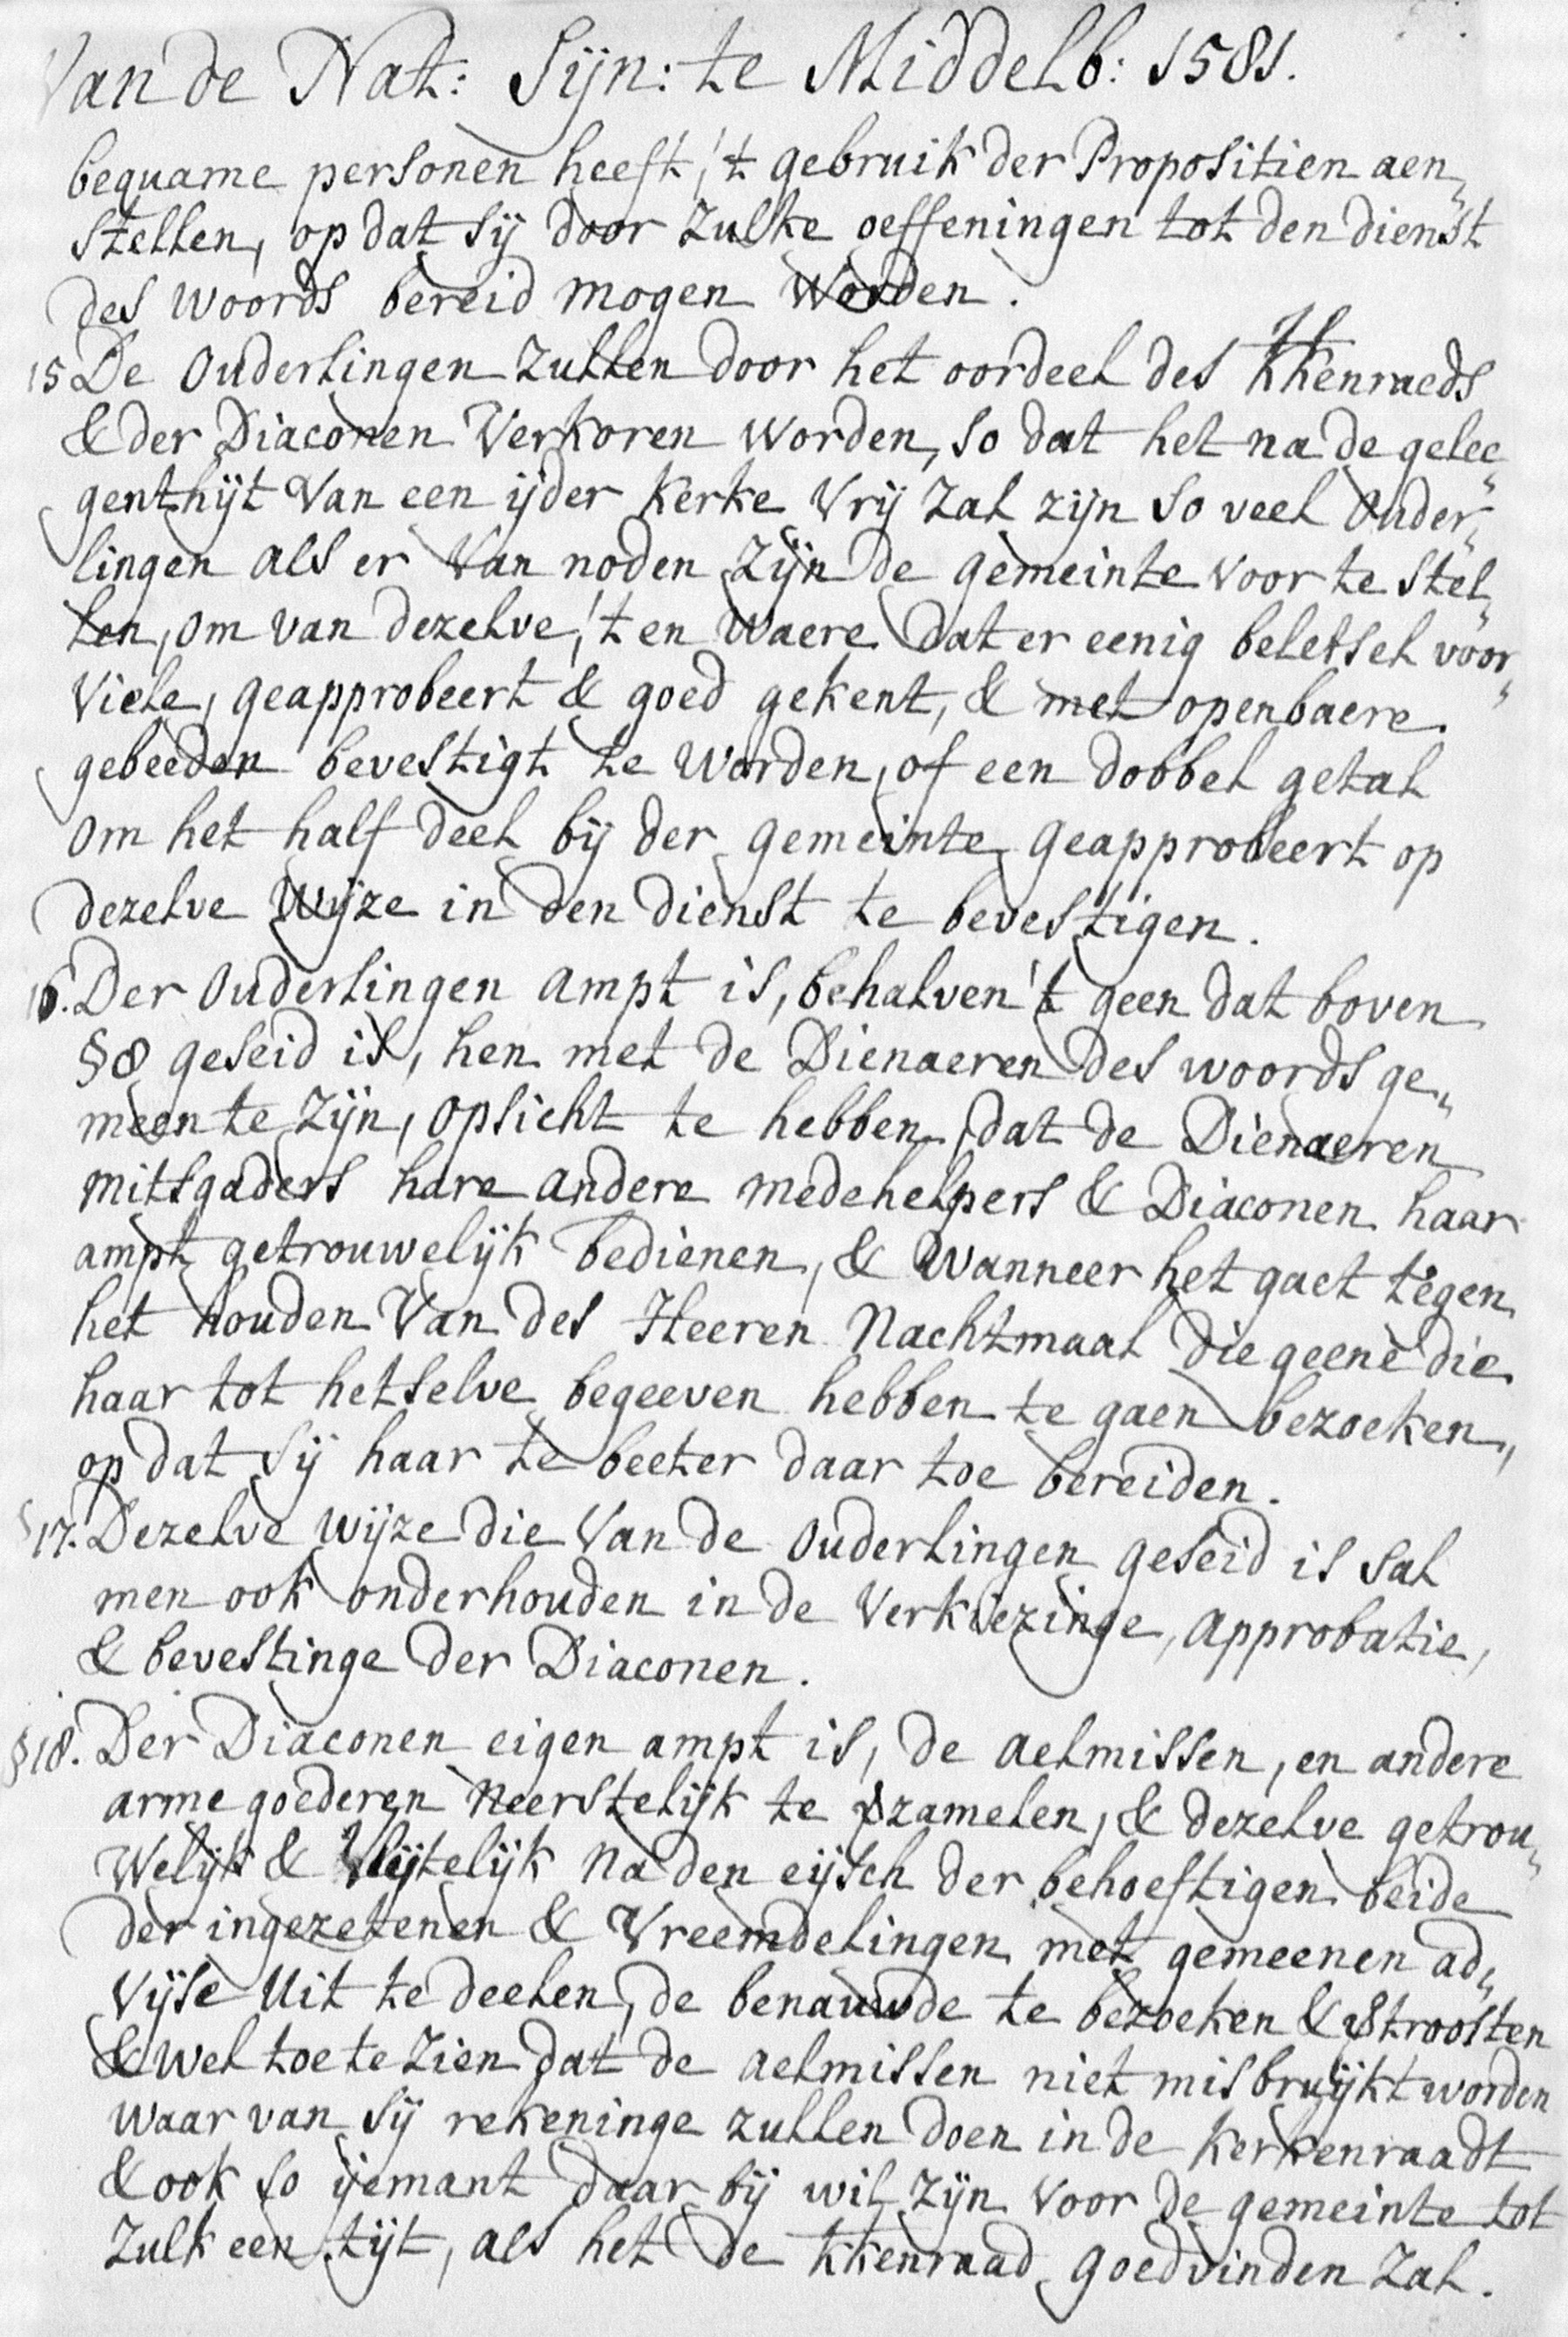 Van de Nat: Sijn: te Middelb: 1581.
bequame personen heeft, 't gebruik der Propositien aen„
stellen, op dat sij door zulke oeffeningen tot den dienst
des woords bereid mogen worden.
15 De Ouderlingen zullen door het oordeel des kkenraeds
& der Diaconen Verkoren worden, so dat het na de gelee„
genthijt van een ijder kerke vrij zal zijn so veel Ouder„
lingen als er van noden zijn de gemeinte voor te stel„
len, om van dezelve, 't en waere dat er eenig beletsel voor„
viele, geapprobeert & goed gekent, & met openbaere
gebeeden bevestigt te worden, of een dobbel getal
om het half deel bij der gemeinte geapprobeert op
dezelve wijze in den dienst te bevestigen.
16. Der Ouderlingen ampt is, behalven 't geen dat boven
§8 geseid is, hen met de Dienaeren des woords ge„
meen te zijn, opsicht te hebben, dat de Dienaeren
mitsgaders hare andere medehelpers & Diaconen haar
ampt getrouwelijk bedienen, & wanneer het gaet tegen
het houden van des Heeren Nachtmaal die geene die
haar tot hetselve begeeven hebben te gaen bezoeken,
op dat sij haar te beeter daar toe bereiden.
§17. Dezelve wijze die van de Ouderlingen geseid is sal
men ook onderhouden in de Verkiezinge, approbatie,
& bevestinge der Diaconen.
§18. Der Diaconen eigen ampt is, de aelmissen, en andere
arme goederen neerstelijk te zamelen, & dezelve getrou„
welijk & vlijtelijk na den eijsch der behoeftigen beide
der ingezetenen & Vreemdelingen met gemeenen ad„
vijse uit te deelen, de benauwde te bezoeken & troosten
& wel toe te zien dat de aelmissen niet misbruijkt worden
waar van sij rekeninge zullen doen in de kerkenraadt
& ook so ijemant daar bij wil zijn voor de gemeinte tot
zulk een tijt, als het de kkenraad goedvinden zal.